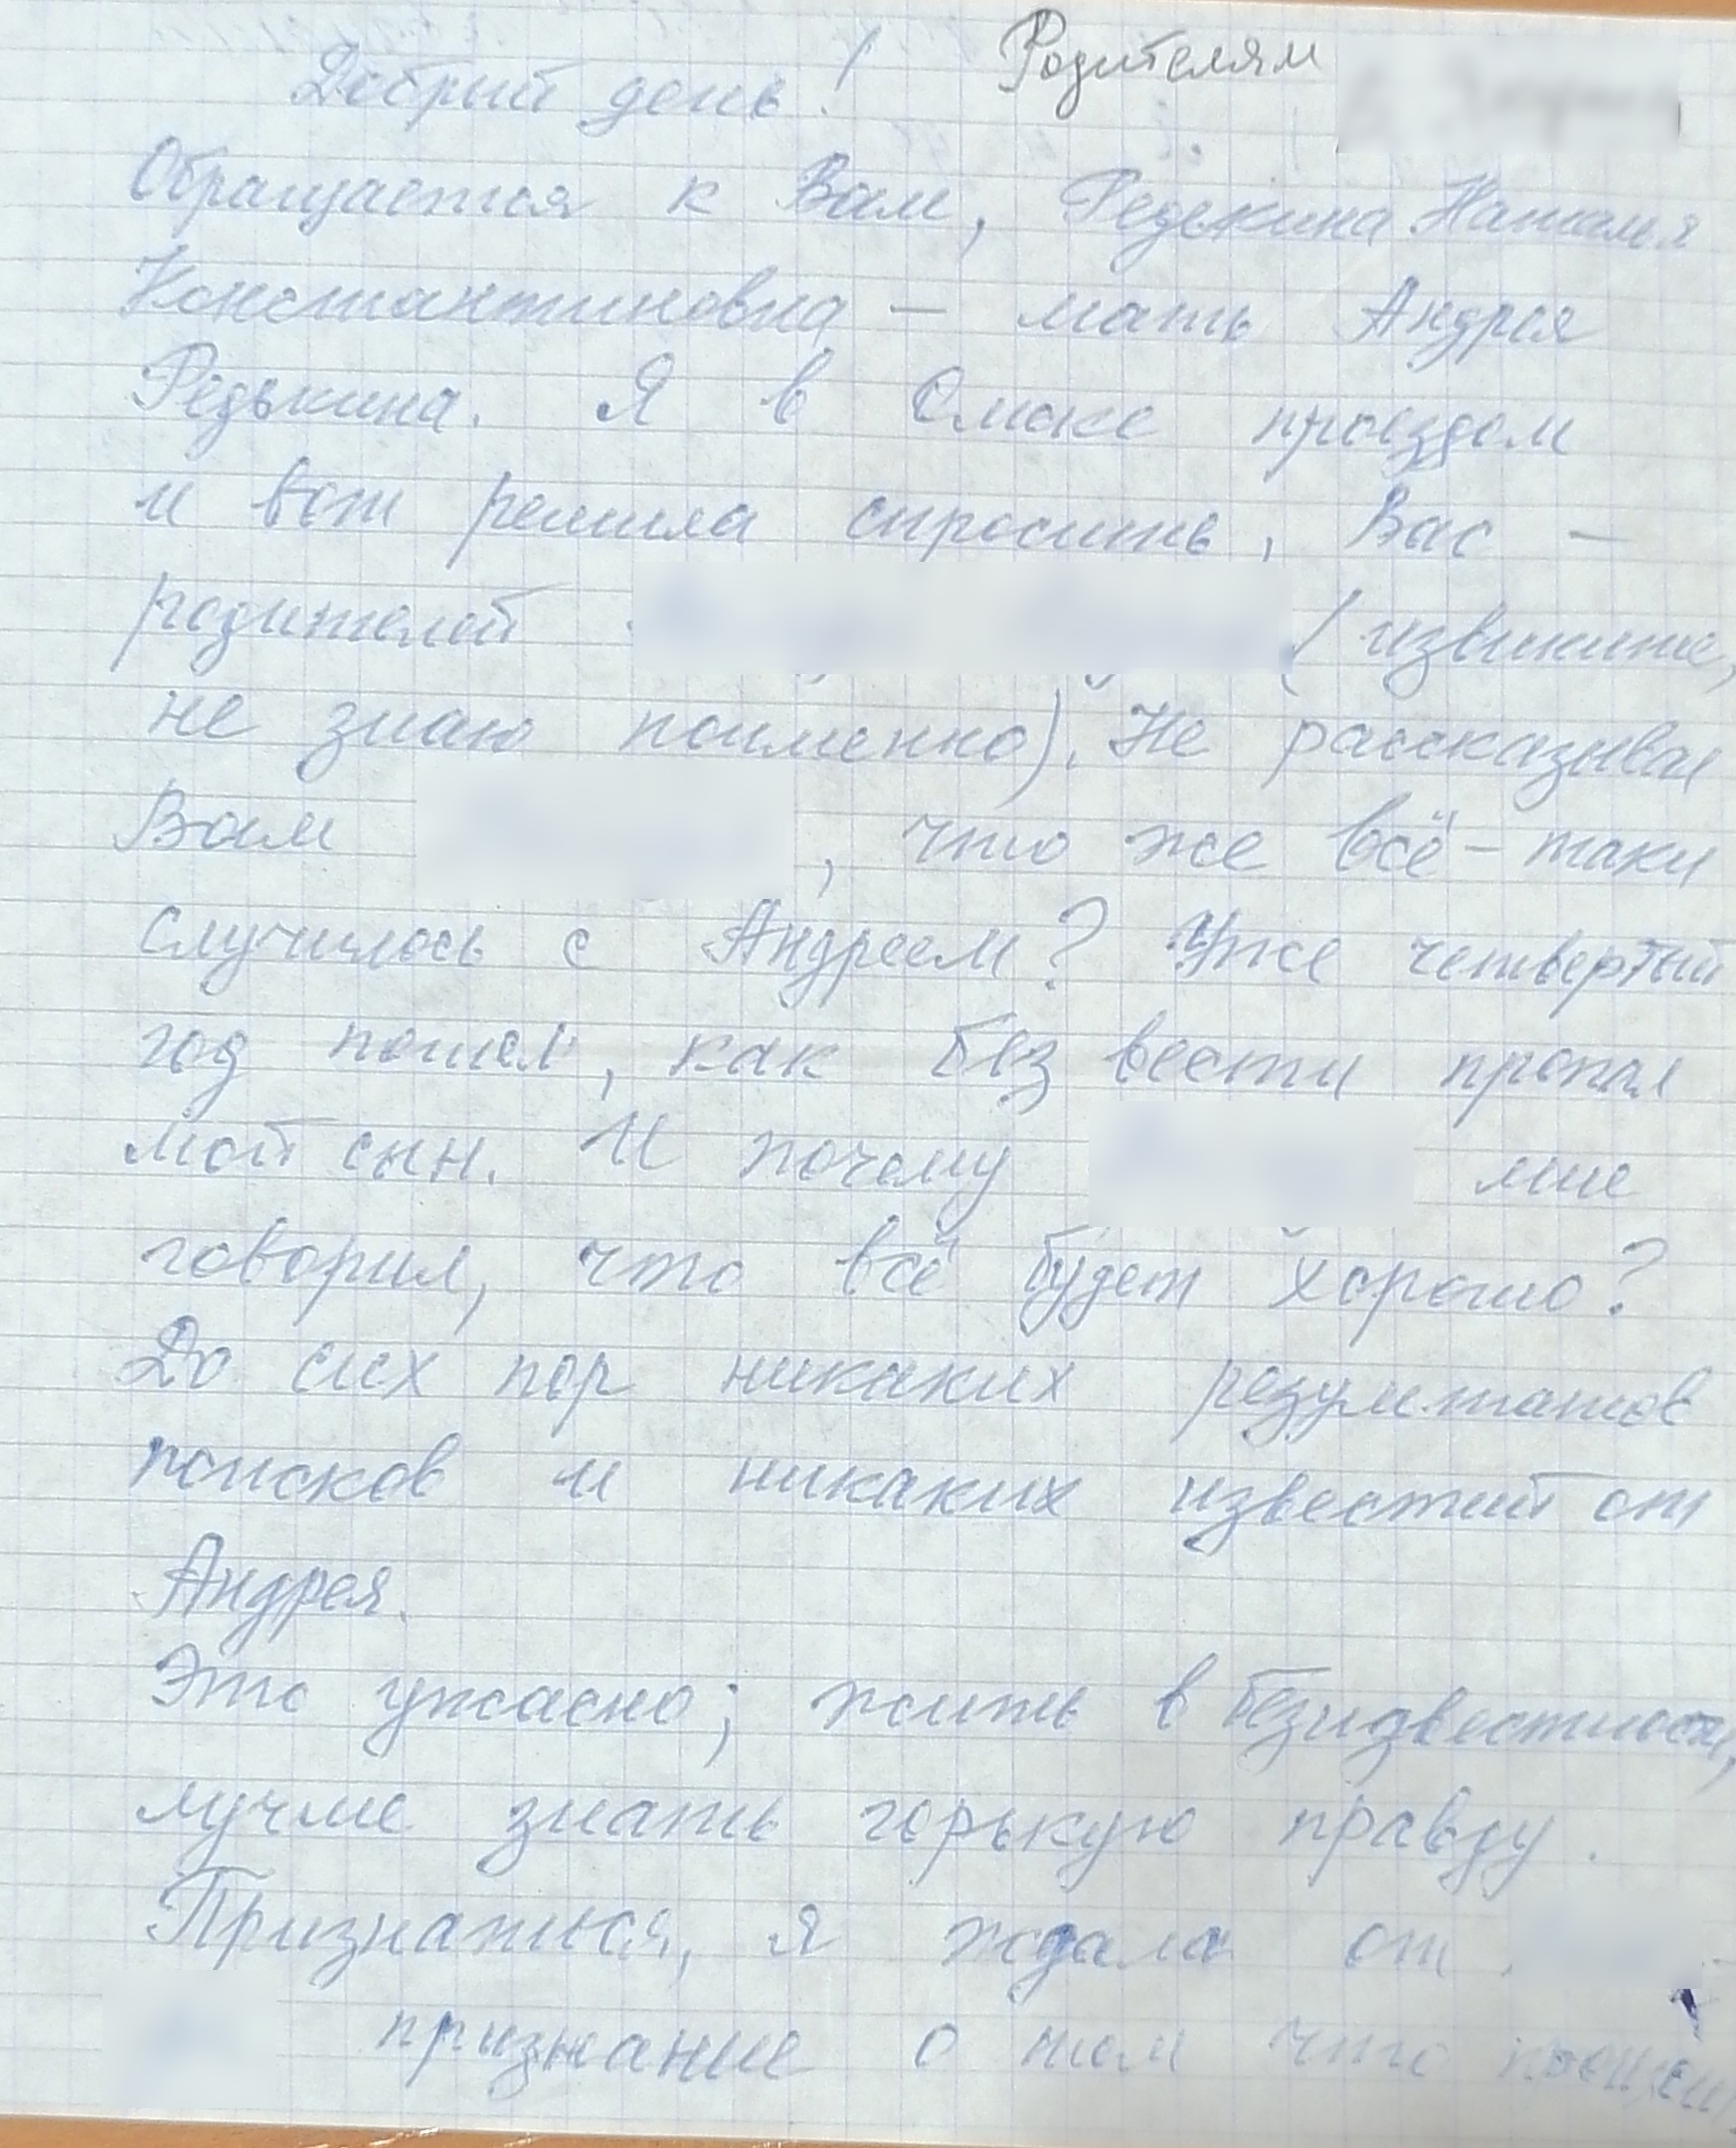 Родителям
Добрый день!
Обращается к Вам, Редькина Наталья
Константиновна — мать Андрея
Редькина. Я в Омске проездом
и вот решила спросить, Вас —
родителей (извините,
не знаю поименно). Не рассказывал
Вам , что же всё-таки
случилось с Андреем? Уже четвертый
год пошел, как без вести пропал
мой сын. И почему мне
говорил, что всё будет хорошо?
До сих пор никаких результатов
поисков и никаких известий от
Андрея.
Это ужасно; жить в безизвестности,
лучше знать горькую правду.
Признаться, я ждала от
признание о том что